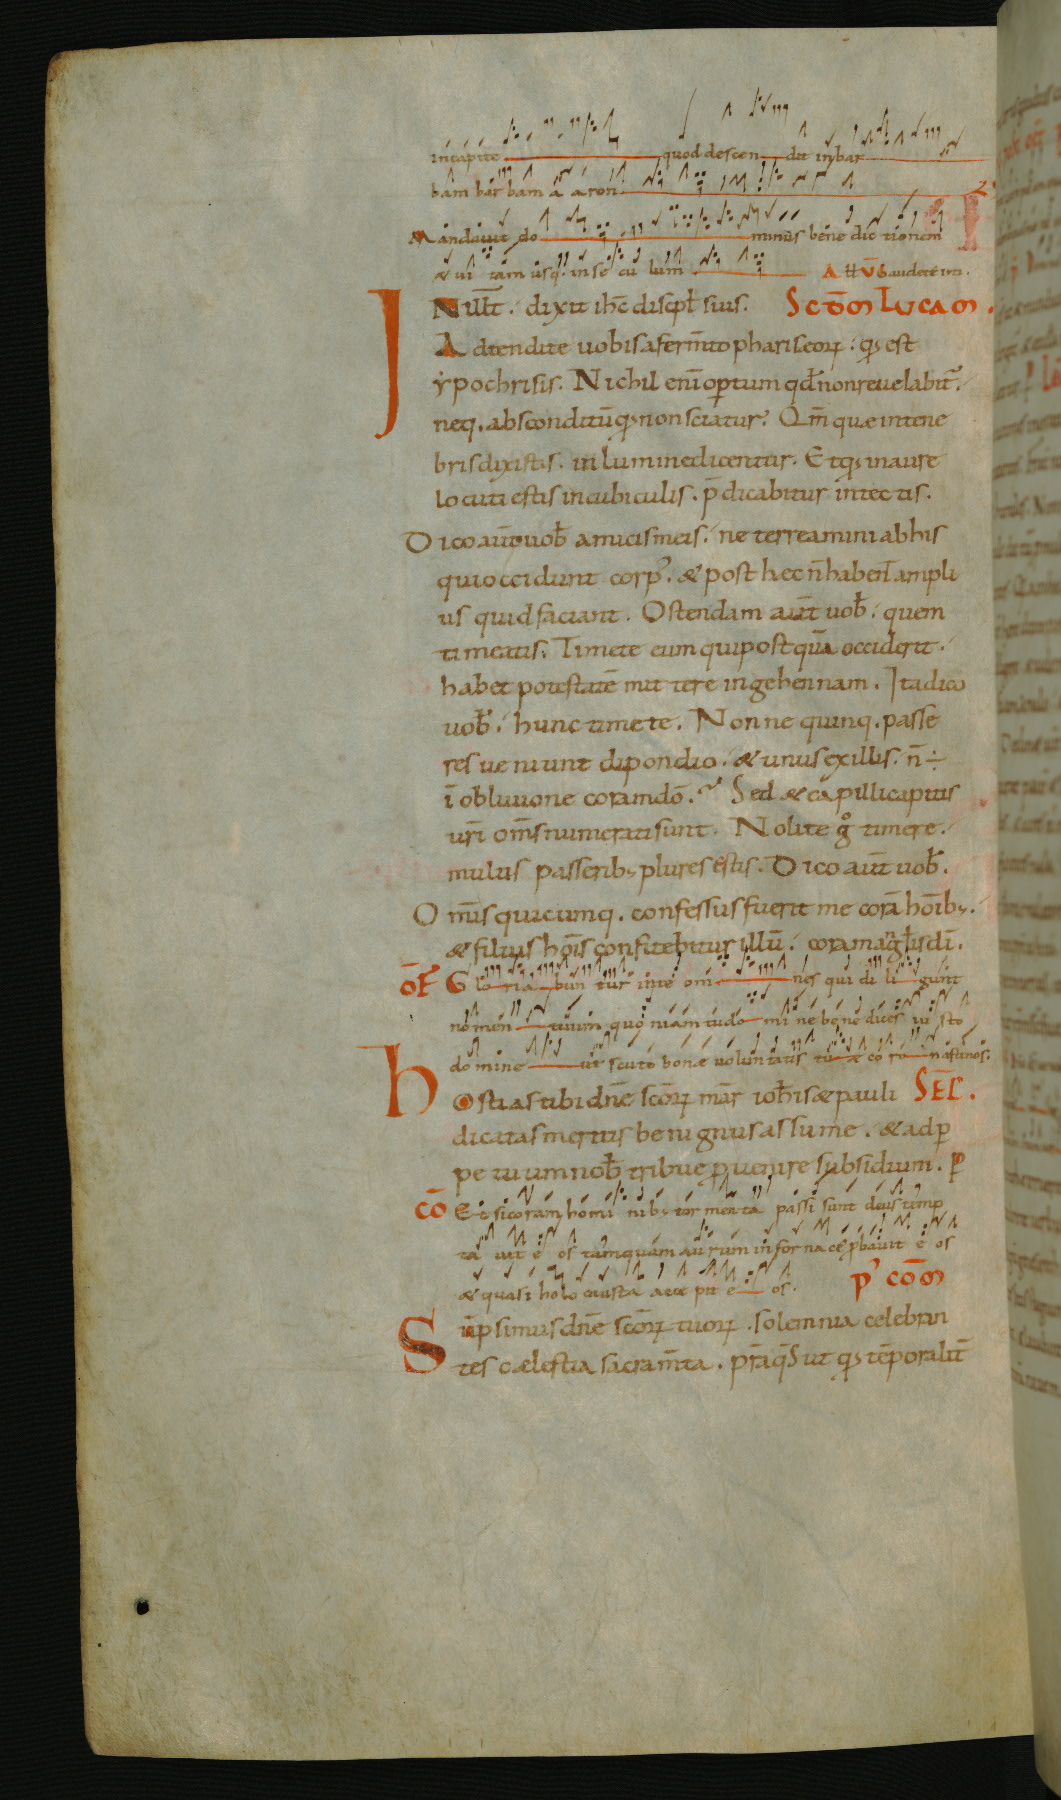 incapite quod descen dit inbar
bam bar bam a aron
Mandavit do minus bene dic tionem
& vi tam usq. inse cu lum A ll V̄S audete iusti.
IN illt̄. dixit ih̄c discipl̄ suis. Sc̄dm Lucam.
Adtendite uobis a ferm̄to phariseoꝝ. qđ est
ypochrisis. Nichil enī optum qd̄ non reuelabit̄.
neq. absconditū qđ non sciatur. Qm̄ quae intene
bris dixistis. in lumine dicentur. Et qđ in aure
locuti estis in cubiculis. p̄dicabitur in tectis.
Dico aūt uob̄ amicis meis. ne terreamini ab his
qui occidunt corpꝰ. & post hec n̄ haben̄t ampli
us quid faciant. Ostendam aūt uob̄. quem
timeatis. Timete eum qui postquā occiderit.
habet potestatē mittere in gehennam. Ita dico
uob̄. hunc timete. Nonne quinq. passe
res ueniunt dipondio. & unus ex illis. n̄ ÷
ī obliuione coram dō. Sed & capilli capitis
uri om̄s numerati sunt. Nolite g̊ timere.
multis passerib; plures estis. Dico aūt uob̄.
Om̄is quicumq. confessus fuerit me corā hoīb;.
& filius hoīs confitebitur illū. coram anglis dī.
OF̄ Glo ria bun tur inte om nes qui di li gunt
nomen tuum quo niam tu do mi ne bene dices iu sto
domine ut scuto bonæ voluntatis tu æ co ro nasti nos.
Hostias tibi dn̄e sc̄oꝝ mār ioh̄is & pauli SEC̄.
dicatas meritis benignus assume. & adp
petuum nob̄ tribue puenire subsidium. P
CŌ Etsi coram homi nib; tor menta passi sunt deus temp
ta uit e os tamquam aurum in for nace pbauit e os
& quasi holo causta acce pit e os. Pꝰ COM
Sūpsimus dn̄e sc̄oꝝ tuoꝝ. solemnia celebran
tes caelestia sacram̄ta. pr̄a qs ut qđ tēporalit̄